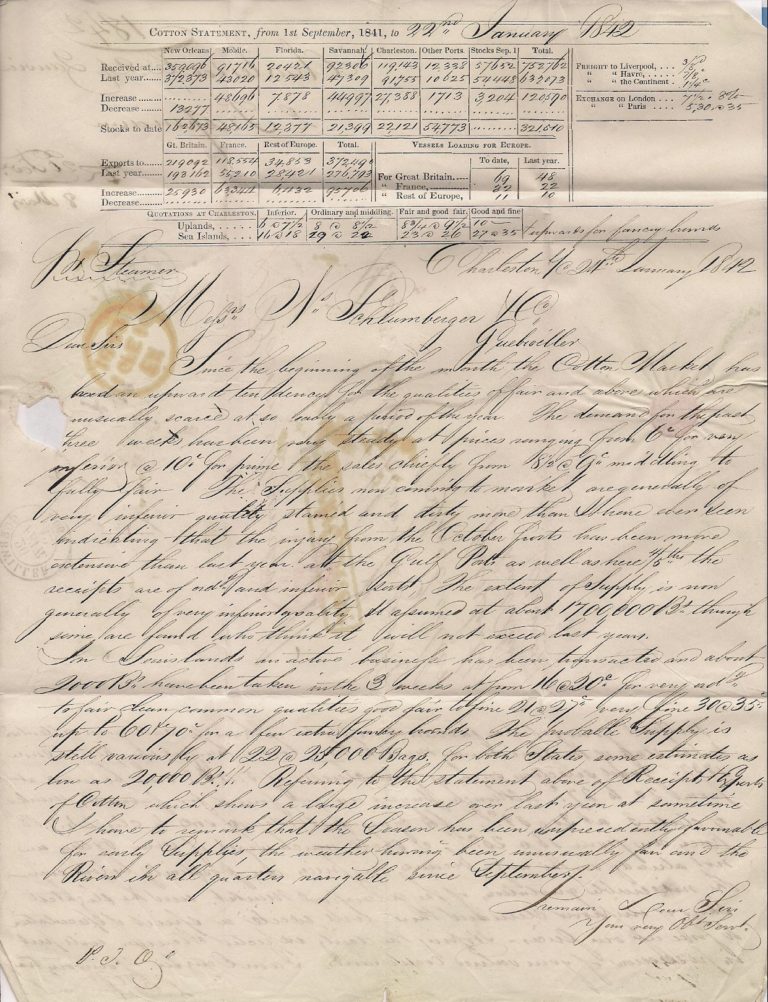 COTTON STATEMENT, from 1st September, 1841, to 22nd January 1842
New Orleans Mobile. Florida. Savannah Charleston. Other Ports. Stocks Sep. 1 Total.
Received at 359096 91716 20421 92306 119143 12,338 57632 752,762
Last year 372,373 43020 12,543 47309 91755 10625 54448 632,073
Increase 48696 7.878 44997 27,388 1713 3,204 120590
Decrease 13277
Stocks to date 162,673 48,165 12,377 21,399 22,121 54,773 321,510
FREIGHT to Liverpool,
" " Havre,
" " the Continent
EXCHANGE on London
" " Paris 5,30 @ 35
Gt. Britain. France. Rest of Europe. Total.
Exports to 219092 118,554 34,853 372,490
Last year 193,162 55,210 28,421 276,793
Increase 25930 63344 6,432 95706
Decrease
VESSELS LOADING FOR EUROPE.
To date, Last year.
For Great Britain. 69 48
" France, 42 22
" Rest of Europe, 11 10
QUOTATIONS AT CHARLESTON. Inferior. Ordinary and middling. Fair and good fair. Good and fine
Uplands, 6 @ 7 1/2 8 @ 8 1/2 8 3/4 @ 9 1/2 10
Sea Islands, 16 @ 18 19 @ 22 23 @ 26 27 @ 35 & upwards for fancy brands
Pr Steamer
Charleston S/C 24th January 1842
Messrs Ns Schlumberger & Co
Guebwiller
Dear Sirs
Since the beginning of the month the Cotton Market has
had an upward tendency for the qualities of fair and above which are
unusually scarce at so early a period of the year The demand for the past
three weeks has been very steady at prices ranging from 6c for very
inferior @ 10c for prime the sales chiefly from 8 1/2 @ 9c middling to
fully fair The Supplies now coming to market are generally of
very inferior quality stained and dirty more than I have ever seen
indicating that the injury from the October has been more
extensive than last year. at the Gulf Ports as well as here 4/5ths the
receipts are of ordy and inferior sorts. The extent of Supply is now
generally of very inferior quality it assumed at about 1700,000 Bs though
some are found who think it will not exceed last years.
In Sea Islands an active business has been transacted and about
2000 Bs have been taken in the 3 weeks at from 16 @ 20c for very ordy
to fair clean common qualities good fair to fine 21 @ 27c very fine 30 @ 35c
up to 60 & 70c for a few extra fancy brands. The probable Supply is
still variously at 22 @ 25000 Bags, for both States some estimates as
low as 20,000 Bs. Referring to the statement above of Receipts & Exports
of Cotton which shows a large increase over last year at sometime
I have to remark that the Season has been unprecedently favourable
for early Supplies the weather having been unusually fair and the
Rivers in all quarters navigable since September/.
I remain Dear Sirs
Your very Obt Servt.